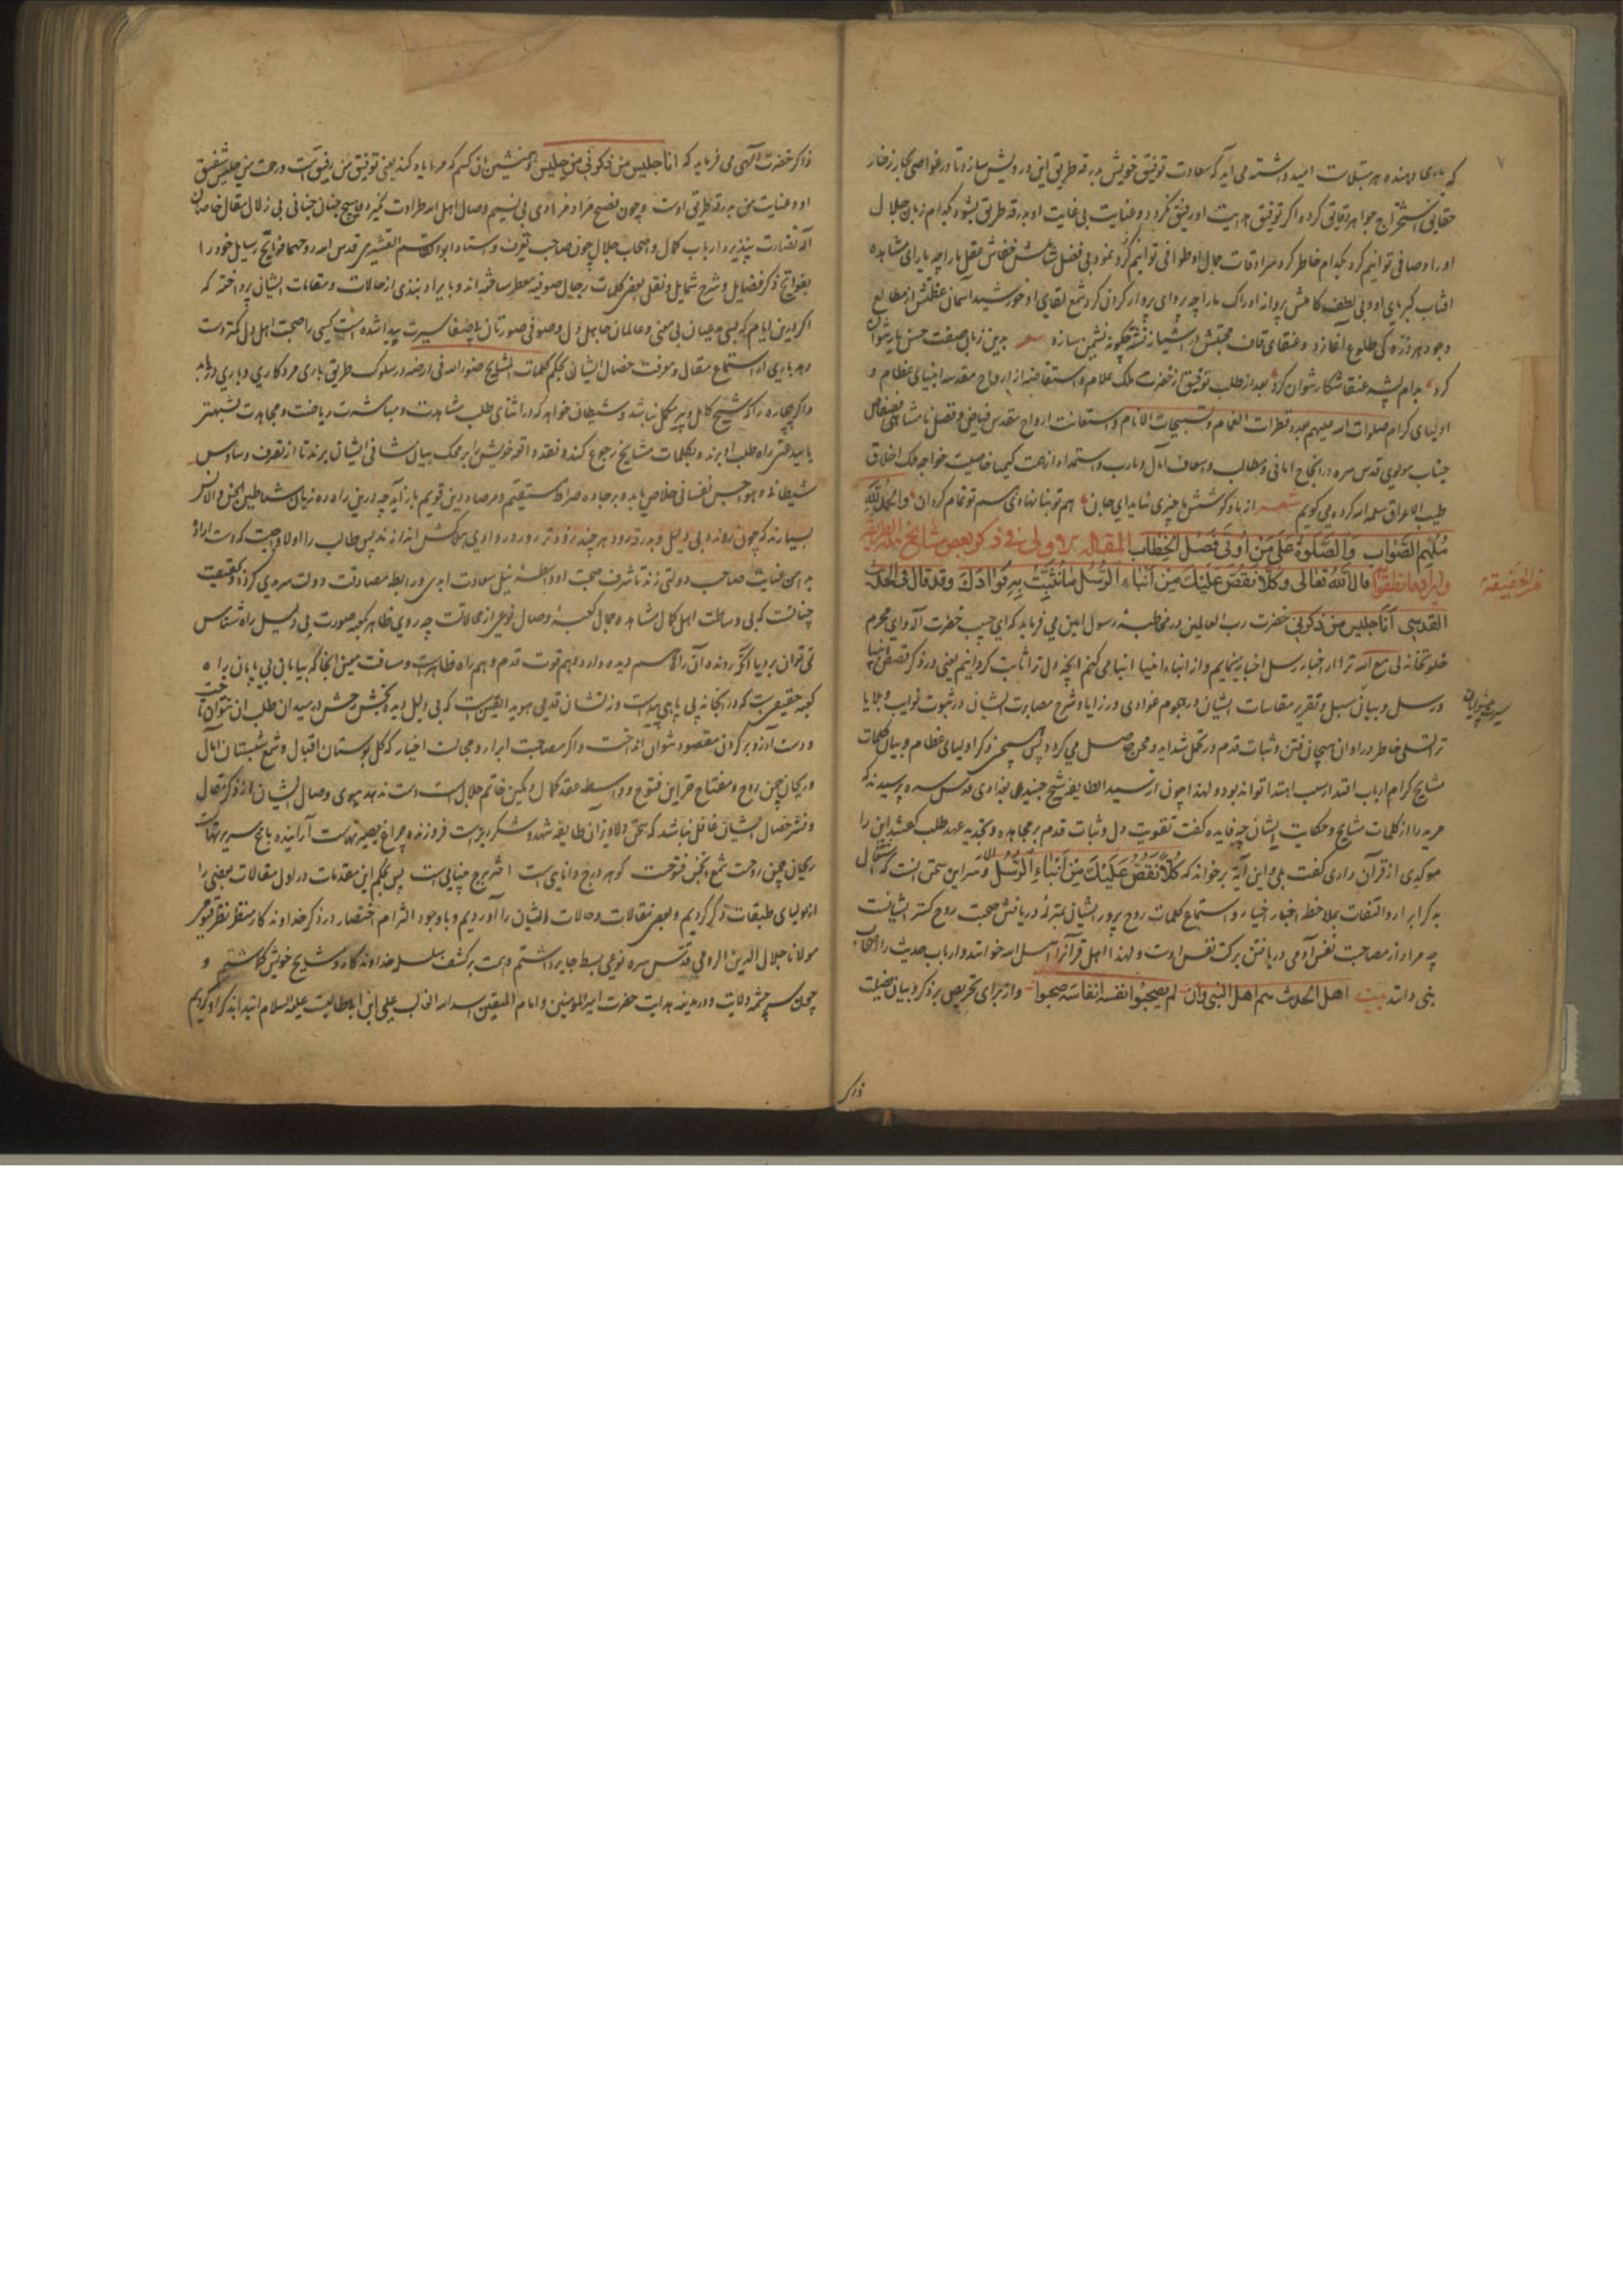 که یاری دهنده هر مبتلاست امید داشته می آید که سعادت توفیق خویش بدرقه طریق این درویش سازد تا در غواصی بحار زخار
حقایق استخراج جواهر دقایق کرده اگر توفیق جهت او رفیق نگردد و عنایت بی غایت او بدرقه طریق نشود بکدام زبان جلال
او را وصافی توانیم کرد بکدام خاطر کرد سرادقات جمال او طوافی توانیم کرد و نمود بی فضل خفاش عقل ما را چه یارای مشاهده
افتاب کبریای او و بی لطف کاملش پروانه ادراک ما را چه پروای پروار کردن کرد شمع لقای او خورشید آسمان عظمتش از مطالع
وجود هر ذره کی طلوع آغازد و عنقای قاف محبتش در آشیانه چگونه نشیمن سازد بدین زبان صفت حسن یار نتوان
کرد بدام پشه عنقا شکار نتوان کرد بعد از طلب توفیق از حضرت ملک علام و استفاضه از ارواح مقدسه انبیای عظام و
اولیای کرام صلوات الله علیهم بعدد قطرات الغمام و تسبیحات الانام و استعانت ارواح مقدس فیاض و فضل نامتناهی
جناب مولوی قدس سره در انجاح امانی و مطالب و اسعاف آمال و مآرب و استمداد از همت کیمیا خاصیت خواجه ملک اخلاق
طیب الاعراق سلمه الله کرده می گویم شعر از ما و کوشش ما چیزی نیاید ای جان هم تو بنا نهادی هم تو تمام گردان والحمد لله
ملهم الصواب والصلوة علی من اوتی فصل الخطاب المقالة الاولی فی ذکر بعض مشایخ الطریقة
قال الله تعالی وکلا نقص علیک من انباء الرسل ما نثبت به فؤادک وقد قال فی الحدیث
القدسی انا جلیس من ذکرنی حضرت رب العالمین در مخاطبه رسول امین می فرماید که ای حبیب حضرت آله و ای محرم
خلوتخانه لی مع الله ترا از اخبار رسل اخبار می نمایم و از انباء انبیا انبا می کنم آنچه دل ترا ثابت گردانیم یعنی در ذکر قصص انبیا
و رسل و بیان سبل و تقریر مقاسات ایشان در هجوم عوادی و رزایا و شرح مصابرت ایشان در ثبوت نوایب و بلایا
ترا تسلی خاطر در اوان هیجان فتن و ثبات قدم در تحمل شداید و محن حاصل می گردد پس همچنین ذکر اولیای عظام و بیان کلمات
مشایخ کرام ارباب اقتدا را سبب اهتدا تواند بود و لهذا چون از سید الطایفه شیخ جنید بغدادی قدس سره پرسیدند که
مرید را از کلمات مشایخ و حکایت ایشان چه فایده گفت تقویت دل و ثبات قدم بر مجاهده و تجدید عهد طلب گفتند این را
موکدی از قرآن داری گفت بلی و این آیة بر خواند که کلا نقص علیک من انباء الرسل الآیة و سر این سخن آنست که اشتغال
بذکر ابرار و التفات بملاحظه اخبار اخیار و استماع کلمات روح پرور ایشان بمنزله دریافتن صحبت روح گستر ایشانست
چه مراد از مصاحبت نفس آدمی دریافتن برکت نفس اوست و لهذا اهل قرآنرا اهل الله خوانند و ارباب حدیث را اصحاب
نبی دانند بیت اهل الحدیث هم اهل النبی وان لم یصحبوا نفسه انفاسه صحبوا و از برای تحریص بر ذکر و بیان فضیلت
ذاکر
ذاکر حضرت الهی می فرماید که انا جلیس من ذکرنی من جلیس و همنشین آن کسم که مرا یاد کند یعنی توفیق من رفیق اوست و رحمت من جلیس شفیق
او و عنایت من بدرقه طریق اوست و چون بی نسیم وصال اهل الله طراوت نگیرد و هیچ جنان جنانی بی زلال مقال خاصان
اله نضارت نپذیرد ارباب کمال و اصحاب جلال چون صاحب تعرف و استاد ابو القاسم القشیری قدس الله روحهما فواتح رسایل خود را
بفوایح ذکر فضایل و شرح شمایل و نقل بعضی کلمات رجال صوفیه معطر ساخته اند و بایراد نبذی از حالات و مقامات ایشان پرداخته که
اگر در این ایام که مدعیان بی معنی و عالمان جاهل دل و صوفی صورتان بی صفا سیرت پیدا شده است کسی را صحبت اهل دل کمتر دست
دهد باری از استماع مقال و معرفت خصال ایشان بحکم کلمات المشایخ جنود الله فی ارضه در سلوک طریق یاری مددکاری و یاری دریابد
و اگر بیچاره را که شیخ کامل و پیر مکمل نباشد و شیطان خواهد که در اثنای طلب مشاهدت و مباشرت ریاضت و مجاهدت بشبهتی
یا بدعتی راه طلب او برند بکلمات مشایخ رجوع کند و نقد واقعه خویش را بر محک بیان شافی ایشان برزند تا از تصرف وساوس
شیطانی و هواجس نفسانی خلاص یابد و بر جاده صراط مستقیم و مرصاد دین قویم باز آید چه درین راه ره زنان شیاطین الجن والانس
بسیارند که چون رونده بی دلیل و بدرقه رود هر چند زودتر رود در وادی هلاکش اندازند پس طالب را اولا واجبست که دست ارادت
بدامن عنایت صاحب دولتی زند تا شرف صحبت او واسطه نیل سعادت ابدی و رابطه مصادقت دولت سرمدی گردد و بحقیقت
چنانست که بی وساطت اهل کمال مشاهده جمال کعبه وصال نوعی از محالاتست چه روی ظاهر بکعبه صورت بی دلیل راه شناس
نمی توان برد با آنکه رونده آن راه را هم دیده دارد و هم قوت قدم و هم راه ظاهرست و مسافت معین آنجا که بیابان بی پایان براه
کعبه حقیقی است که در آنجا نه پی پاهی پیداست و نه نشان قدمی هویدا یقین است که بی دلیل دیده بخش در میدان طلب آن نتوان تاخت
و دست آرزو بر گردن مقصود نتوان انداخت و اگر مصاحبت ابرار و مجالست اخیار که گل بوستان اقبال و شمع شبستان آمال
و ریحان چمن روح و مفتاح خزاین فتوح و واسطه عقد کمال و نگین خاتم جلال است دست ندهد بوی وصال ایشان از ذکر مقال
و نشر خصال ایشان غافل نباشد که سخن دلاویز آن طایفه شهد و شکر ریزست فروزنده چراغ بصیرتهاست آراینده باغ سریرتهاست
ریحان چمن روحست شمع انجمن فتوحست گوهر درج دانایی است اختر برج بینایی است پس بحکم این مقدمات در اول مقالات بعضی را
از اولیای طبقات ذکر کردیم و بعضی مقالات و حالات ایشان را آوردیم و با وجود التزام اختصار در ذکر خداوندگار منظر نظر قیومی
مولانا جلال الدین الرومی قدس سره نوعی بسط جایز داشتیم و همت بر کشف سلسله خداوندگار و مشایخ خویش گماشتیم و
چون سرچشمه ولایت و در مدینه هدایت حضرت امیر المومنین و امام المتقین اسد الله الغالب علی ابن ابی طالبست علیه السلام ابتدا بذکر او کردیم